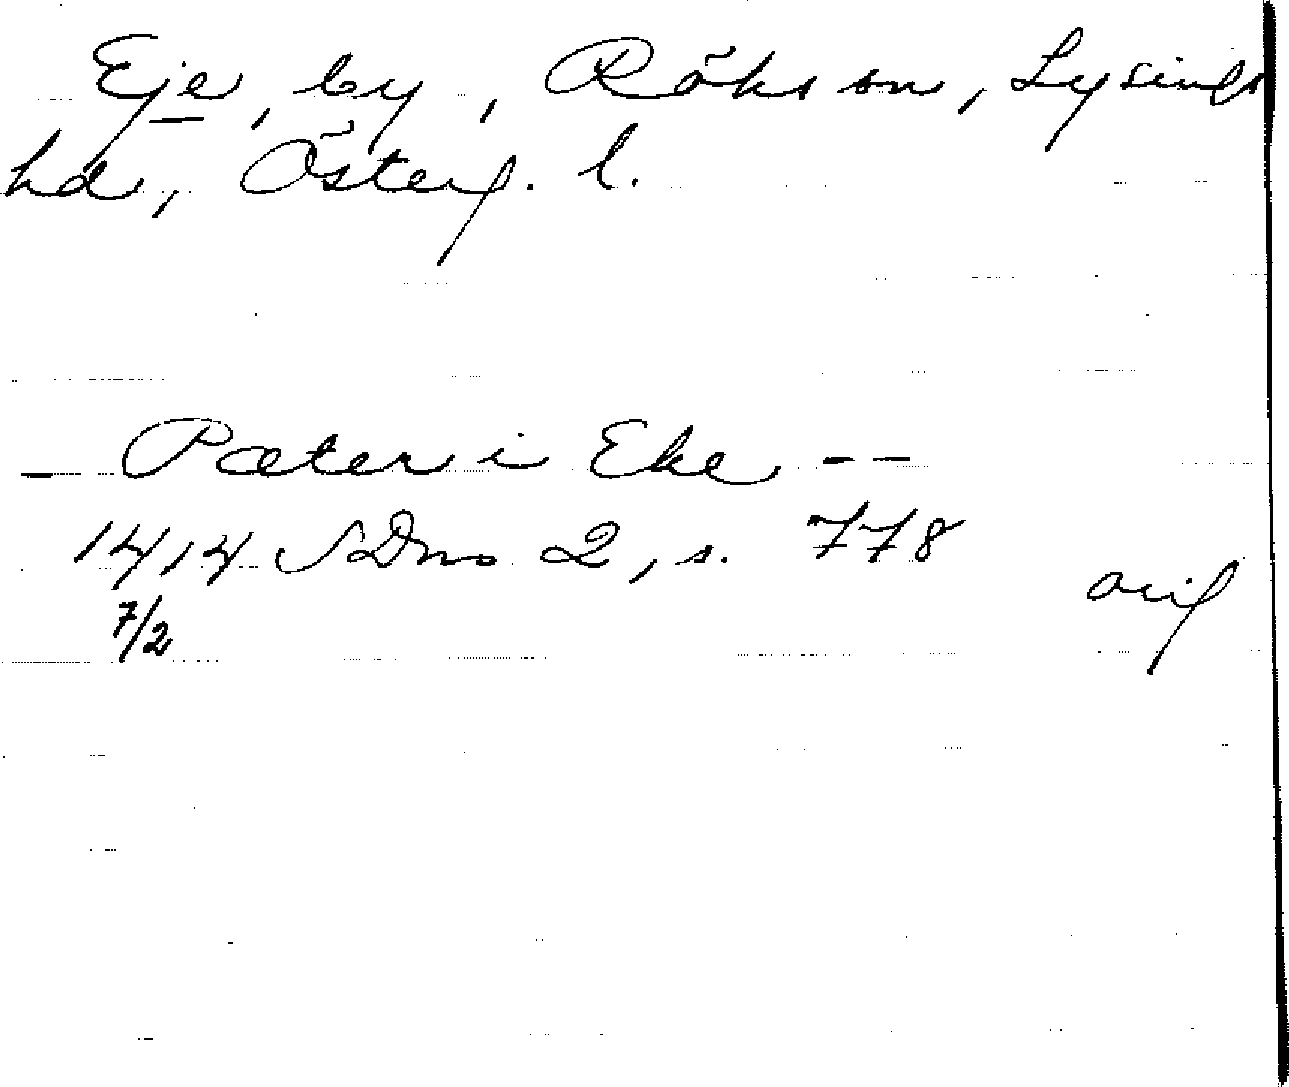 Eje, by, Röks sn, Lysings
hd, Österg. l.
- Pæter i Eke - -
1414 SDns 2, s. 778
7/2
orig